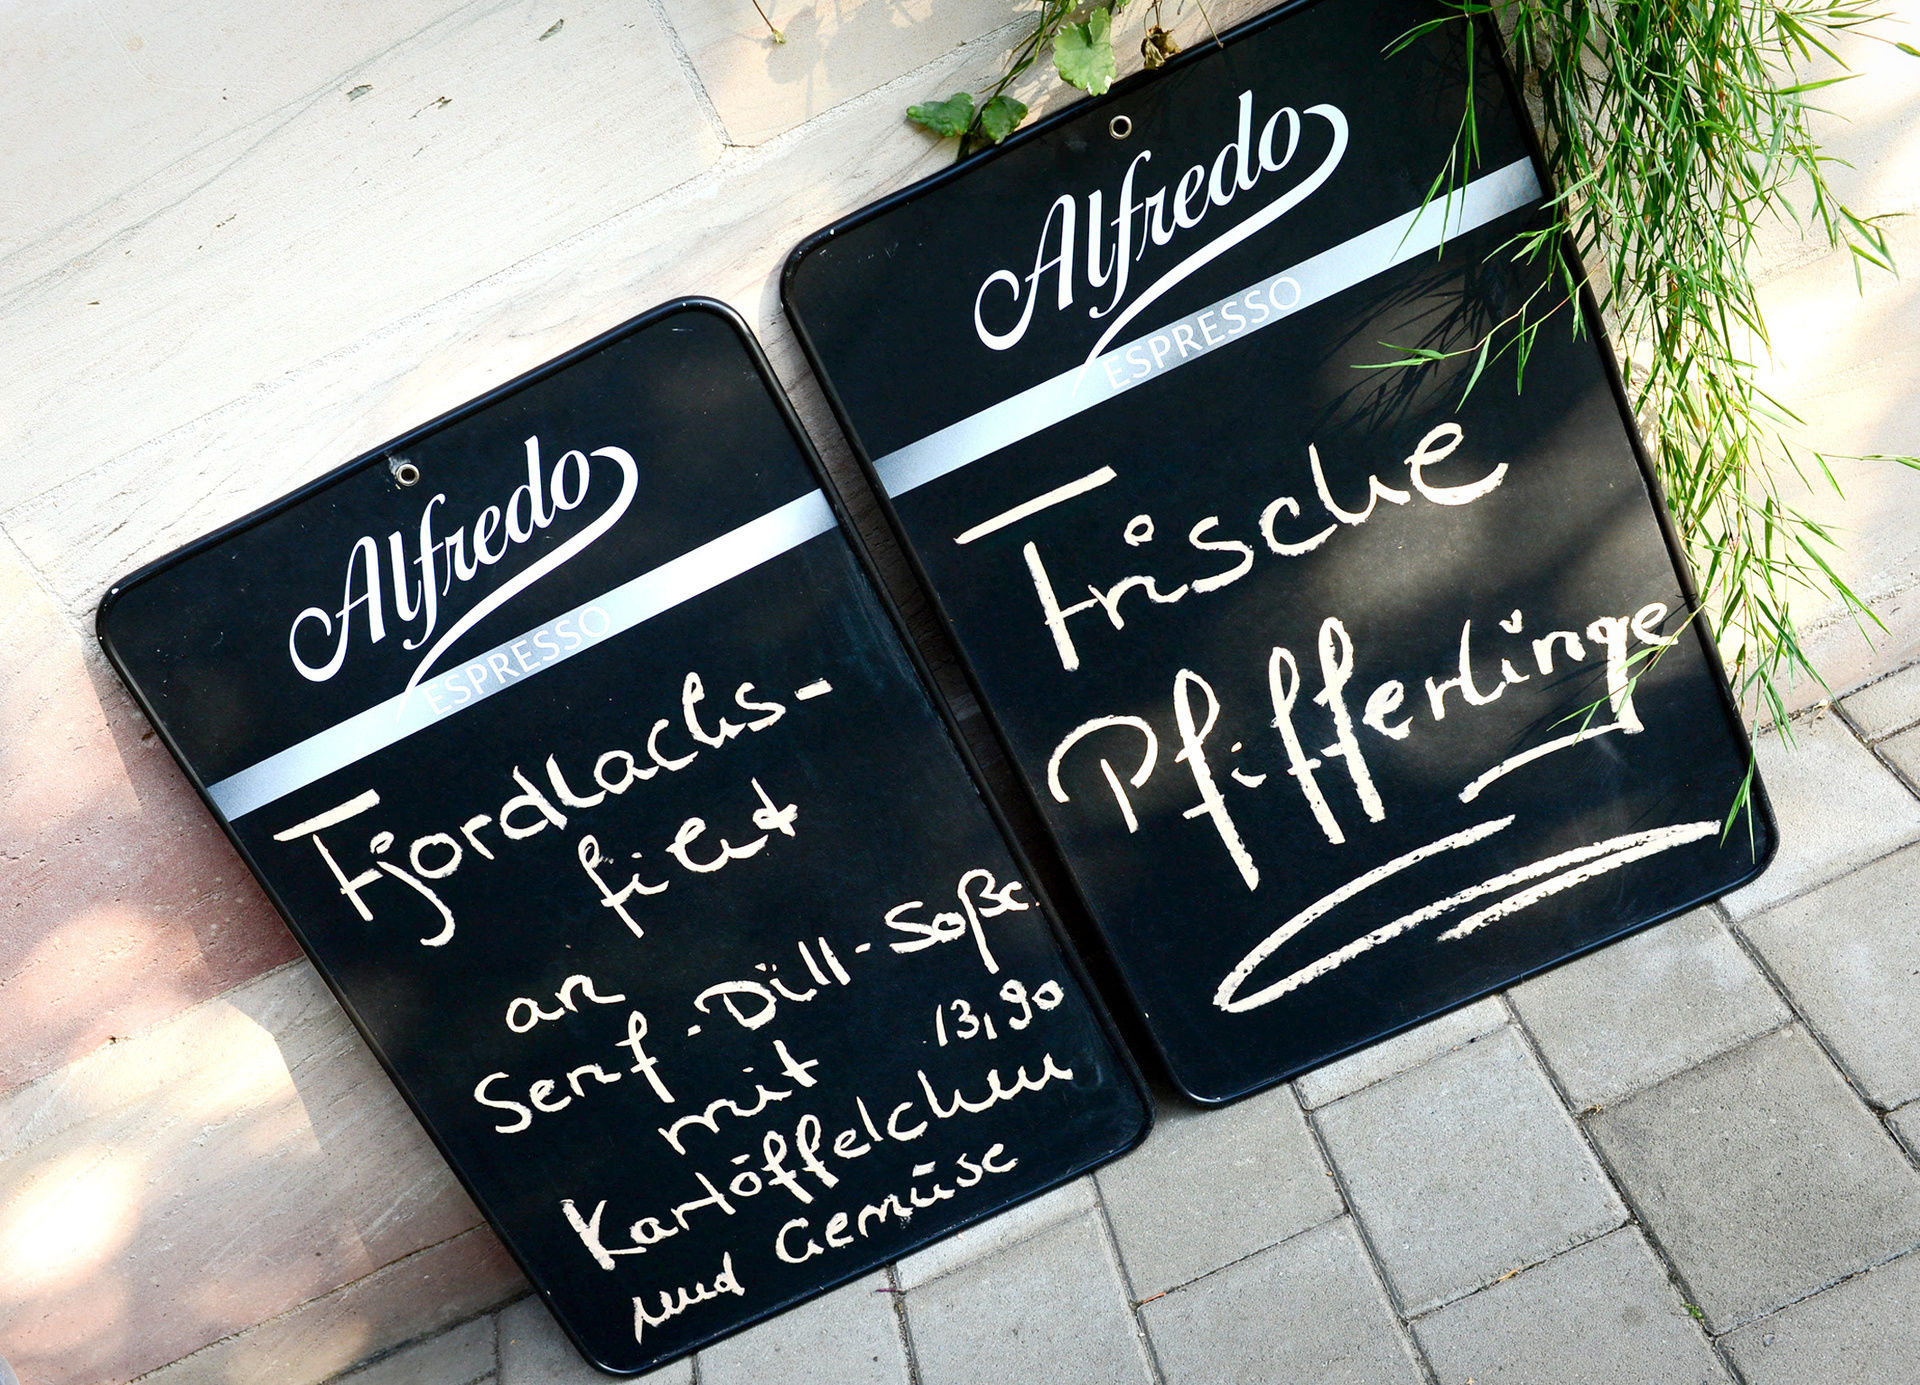 Alfredo
ESPRESSO
Fjordlachs-
filet
an
Senf-Dill-Soße
mit 13,90
Kartöffelchen
und Gemüse
Alfredo
ESPRESSO
Frische
Pfifferlinge